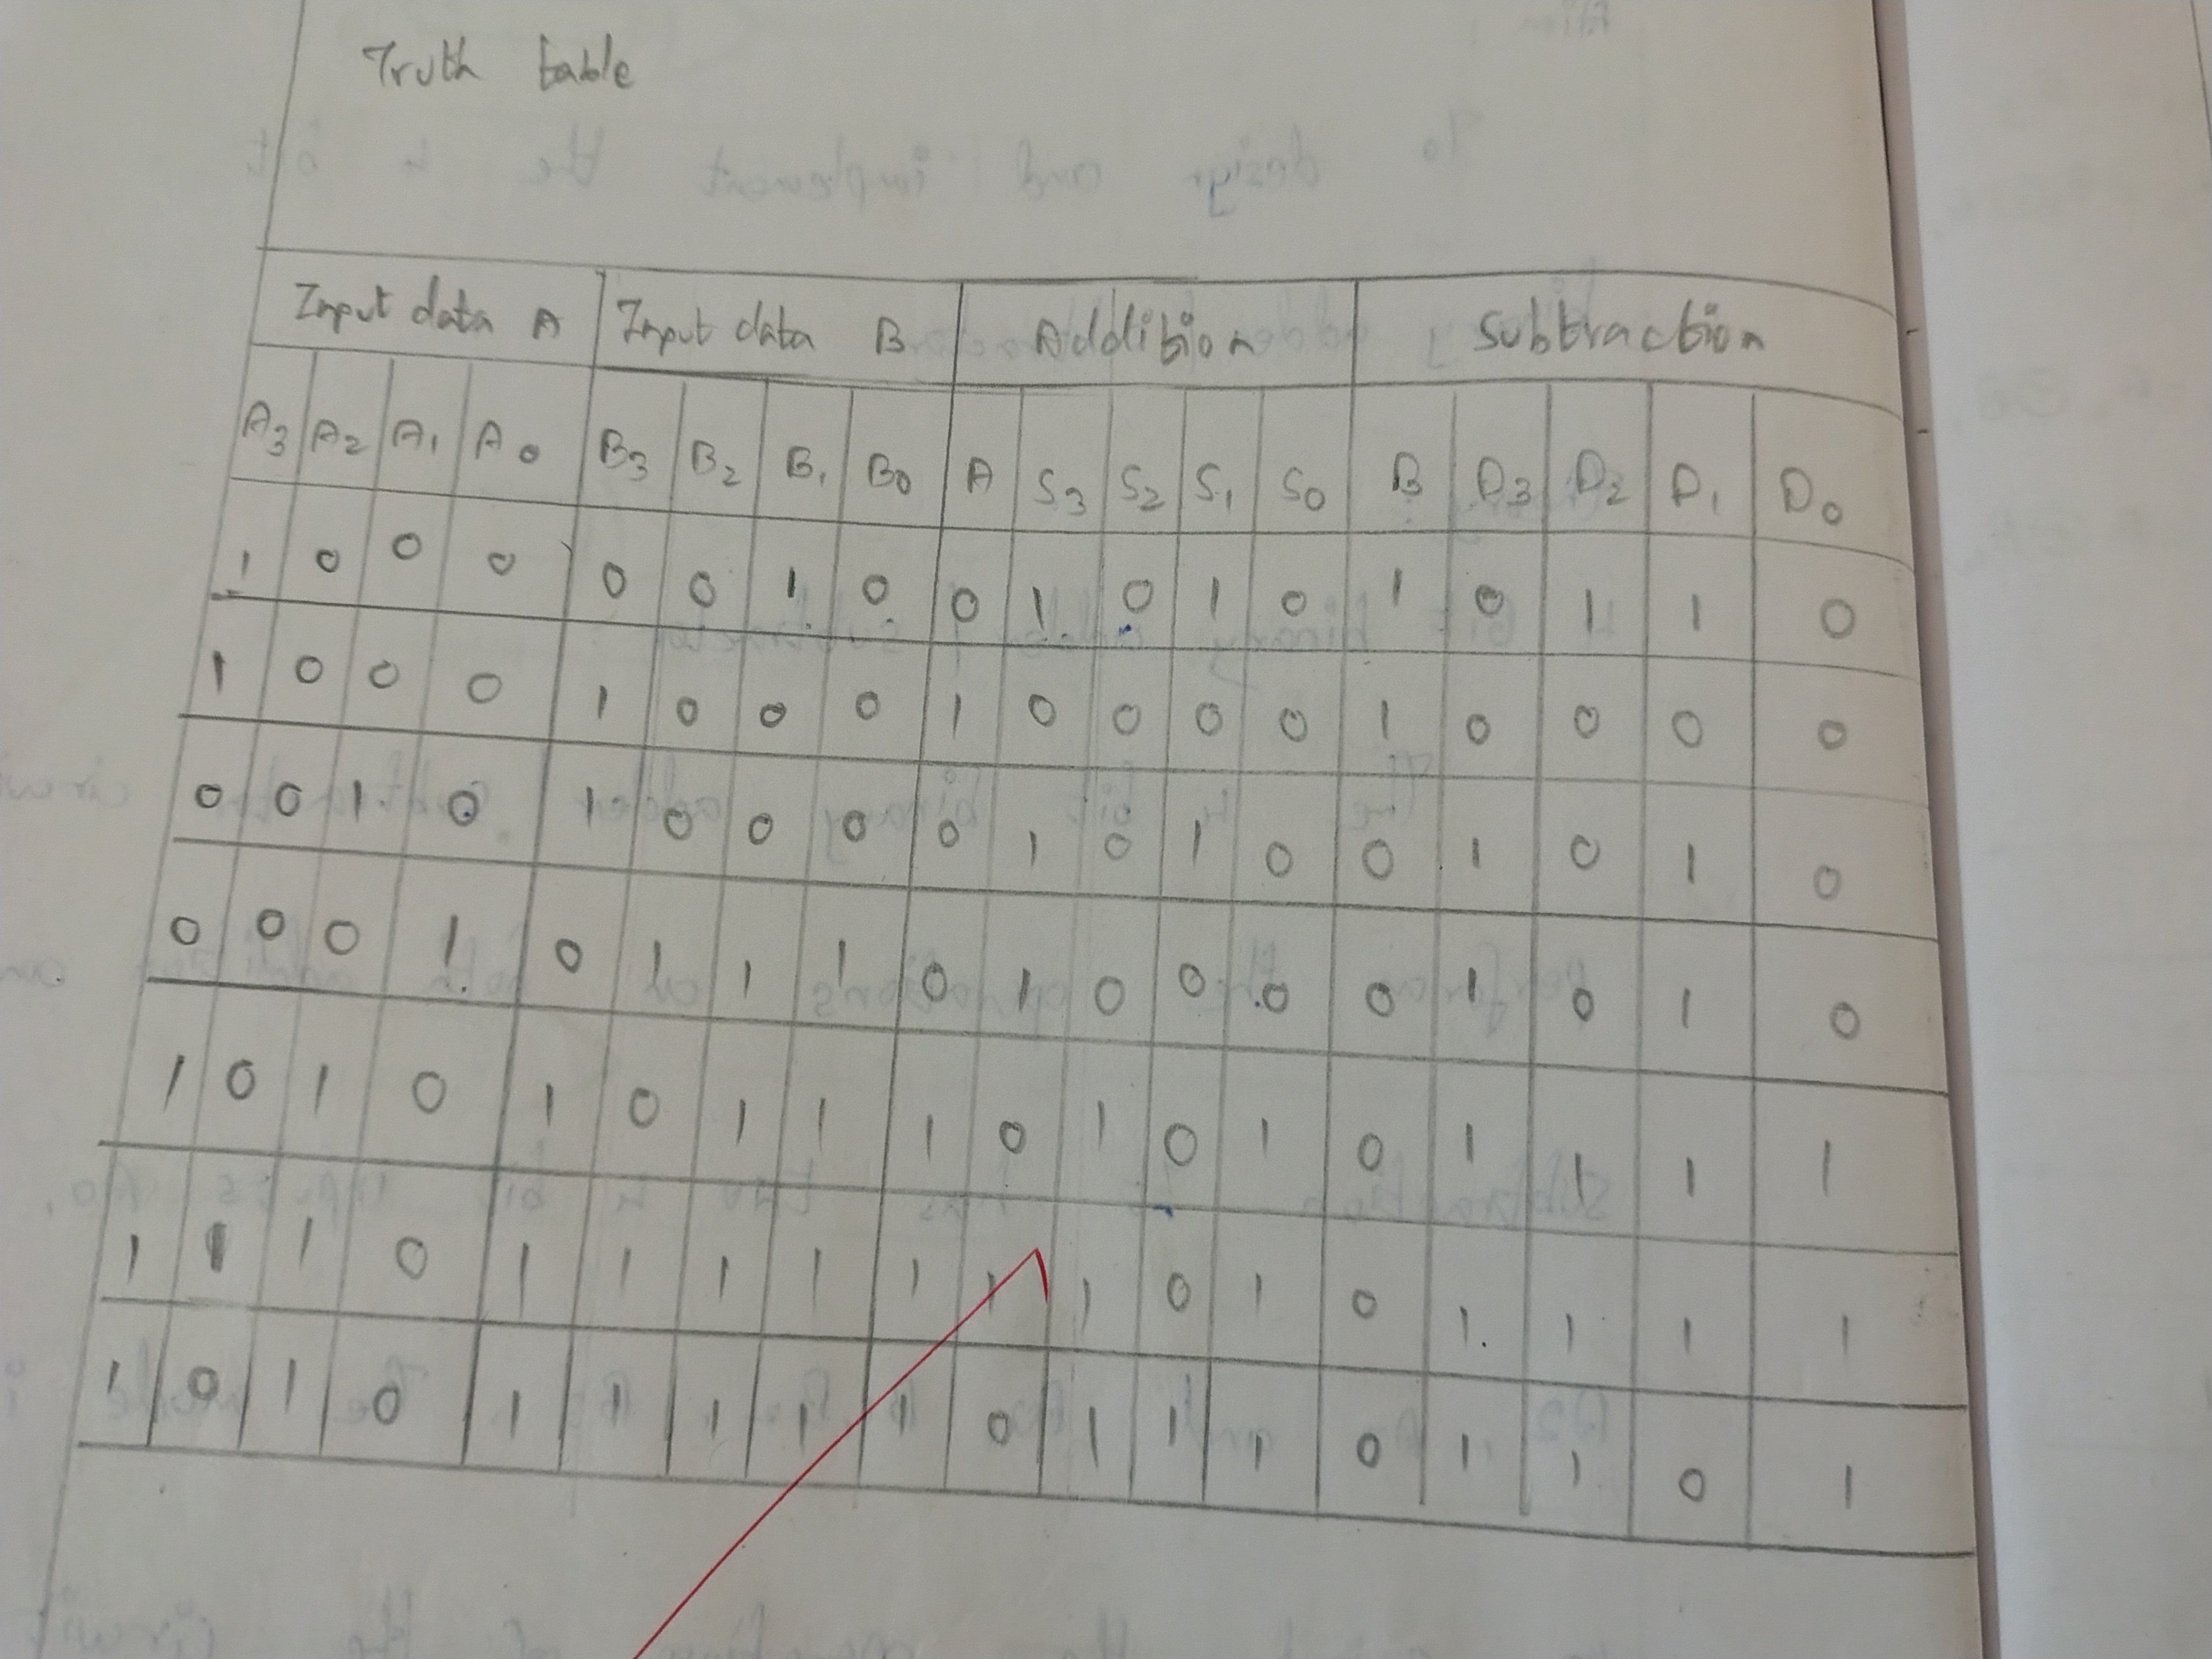 Truth table
Input data A Input data B Addition Subtraction
A3 A2 A1 A0 B3 B2 B1 B0 A S3 S2 S1 S0 B D3 D2 D1 D0
1 0 0 0 0 0 1 0 0 1 0 1 0 1 0 1 1 0
1 0 0 0 1 0 0 0 1 0 0 0 0 1 0 0 0 0
0 0 1 0 1 0 0 0 0 1 0 1 0 0 1 0 1 0
0 0 0 1 0 1 1 1 0 1 0 0 0 0 1 0 1 0
1 0 1 0 1 0 1 1 1 0 1 0 1 0 1 1 1 1
1 1 1 0 1 1 1 1 1 1 1 0 1 0 1 1 1 1
1 0 1 0 1 1 1 1 1 0 1 1 1 0 1 1 0 1